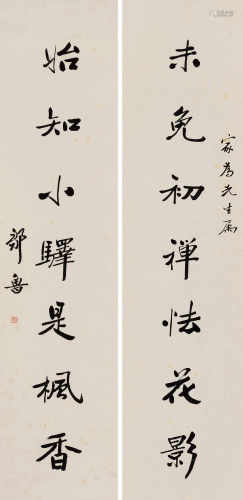 家为先生属
未免初禅怯花影
始知小驛是楓香
鄒魯